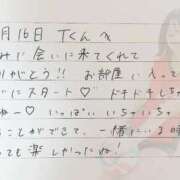 月16日 Tくんへ
みに会いに来てくれて
りがとう!! お部屋に入って
にスタート♡ ドキドキしち
ねー♡ いっぱいいちゃいちゃ
ことができて、一緒にいる時
っても楽しかったね!